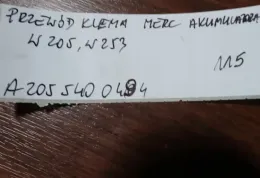 PRZEWÓD KLEMA MERC AKUMULATORA
W205, W253
115
A 205 540 0494